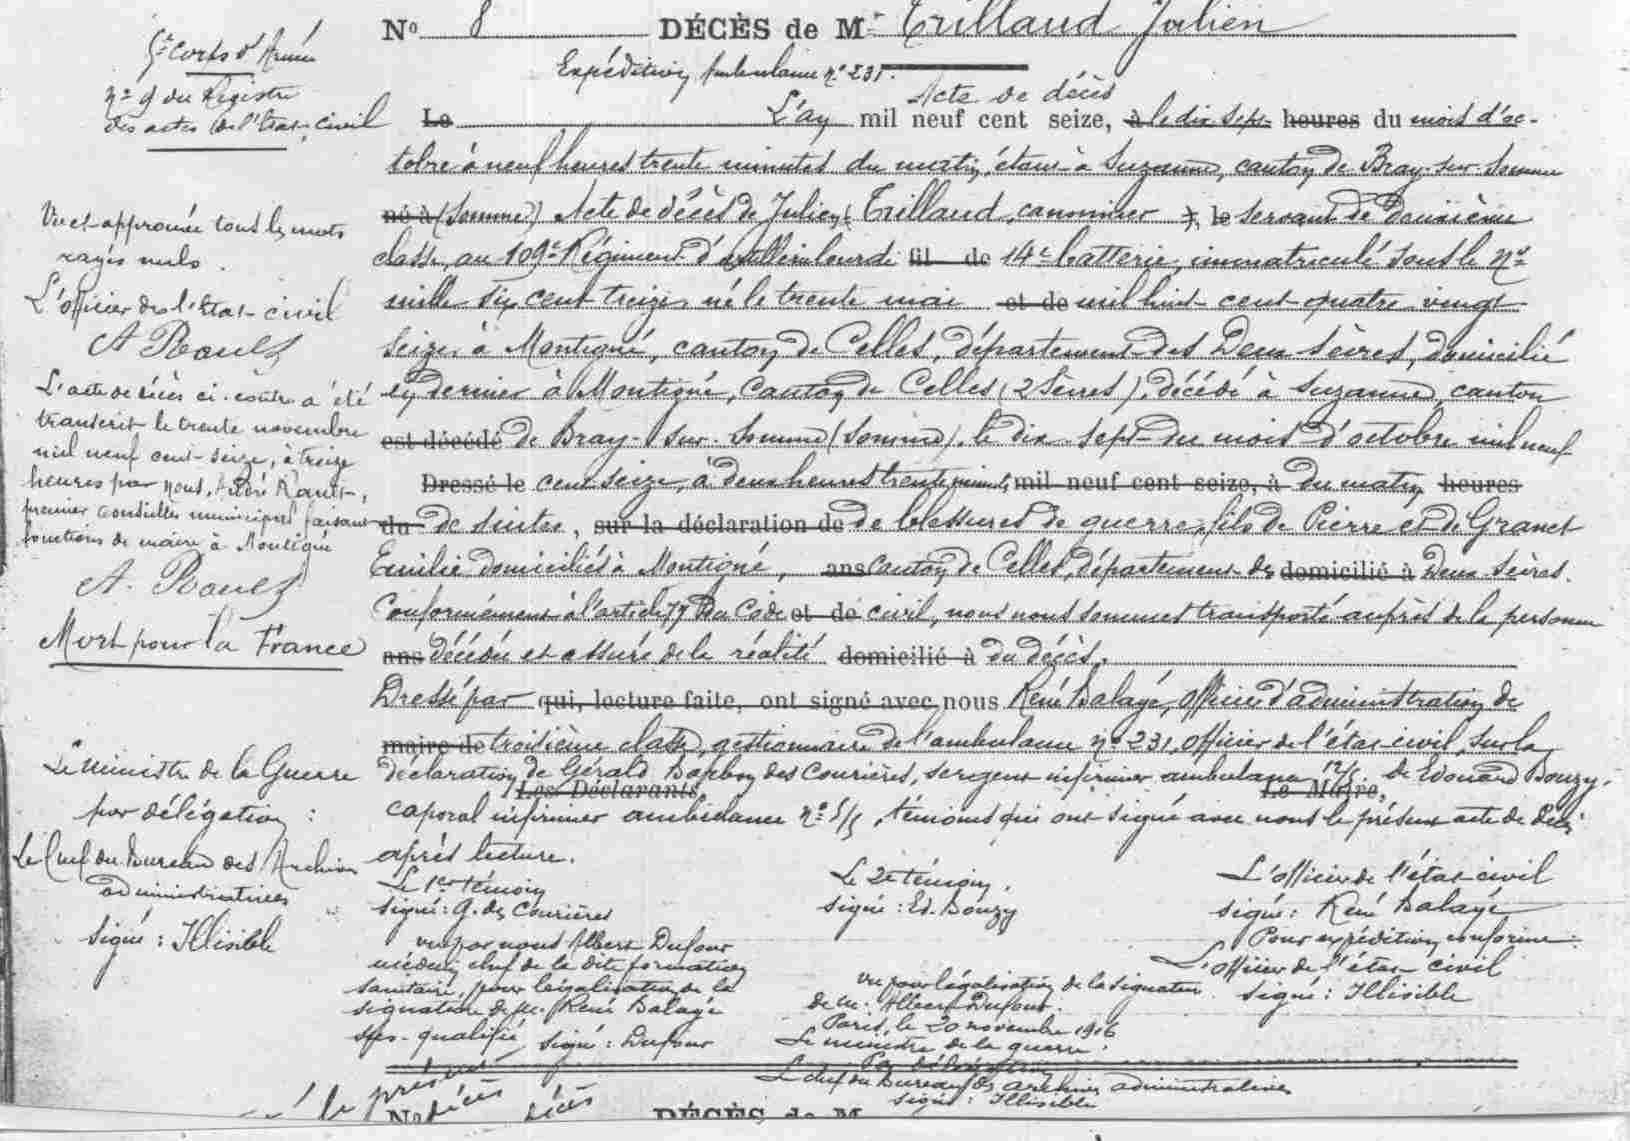 No 8 DÉCÈS de Mr Trillaud Julien
5e Corps d'Armée
No 9 du Registre
des actes de l'état-civil
Expédition Ambulance no 231.
Acte de décès
Le L'an mil neuf cent seize, à le dix sept heures du mois d'oc-
tobre à neuf heures trente minutes du matin, étant à Suzanne, canton de Bray-sur-Somme
né à (Somme) Acte de décès de Julien Trillaud, canonnier servant de deuxième
classe, au 109e Régiment d'artillerie lourde fil de 14e batterie, immatriculé sous le No
mille six cent treize, né le trente mai et de mil huit-cent-quatre-vingt
seize à Montigné, canton de Celles, département des Deux Sèvres, domicilié
en dernier à Montigné, canton de Celles (2 Sèvres), décédé à Suzanne, canton
est décédé de Bray-sur-Somme (Somme), le dix-sept du mois d'octobre mil neuf
Dressé le cent seize, à deux heures trente minutes, mil neuf cent seize, à du matin heures
du de suites, sur la déclaration de de blessures de guerre, fils de Pierre et de Granet
Emilie domiciliés à Montigné, ans canton de Celles, département des domicilié à Deux-Sèvres.
Conformément à l'article 77 du Code et de civil, nous nous sommes transporté auprès de la personne
ans décédée et assuré de la réalité domicilié à du décès.
Dressé par qui, lecture faite, ont signé avec nous René Balayé, officier d'administration de
maire de troisième classe, gestionnaire de l'ambulance no 231, officier de l'état-civil, sur la
déclaration de Gérald Barbey des Courières, sergent infirmier ambulance 12/5. de Edouard Bouzy,
Les Déclarants, Le Maire,
caporal infirmier ambulance no 5/5, témoins qui ont signé avec nous le présent acte de décès
après lecture.
Le 1er témoin
signé: G. des Courières
Le 2e témoin.
signé: Ed. Bouzy
L'officier de l'état-civil
signé: René Balayé
vu par nous Albert Dufour
médecin chef de la dite formation
sanitaire, pour légalisation de la
signature de M. René Balayé
sus-qualifié signé: Dufour
vu pour légalisation de la signature
de M. Albert Dufour.
Paris, le 20 novembre 1916
Le ministre de la guerre.
Par délégation
Le chef du Bureau des archives administratives
signé: Illisible
Pour expédition conforme.
L'officier de l'état-civil
signé: Illisible
Vu et approuvé tous les mots
rayés nuls.
L'officier de l'état-civil
A Rault
L'acte de décès ci-contre a été
transcrit le trente novembre
mil neuf cent-seize, à treize
heures par nous, André Rault,
premier conseiller municipal faisant
fonctions de maire à Montigné
A. Rault
Mort pour la France
Le Ministre de la Guerre
par délégation:
Le Chef du Bureau des Archives
administratives
Signé: Illisible
le présent
No décès décès DÉCÈS de M